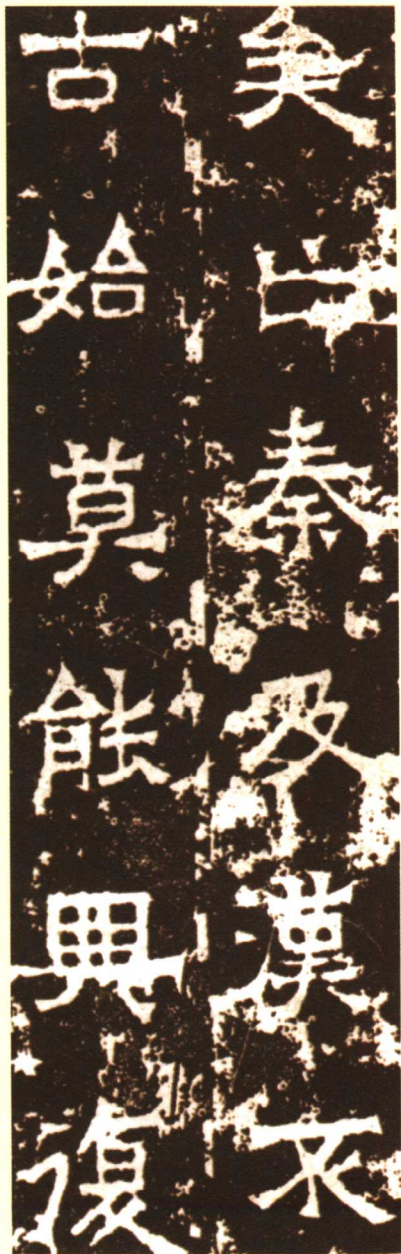 矣秦及漢不
古始莫能興復